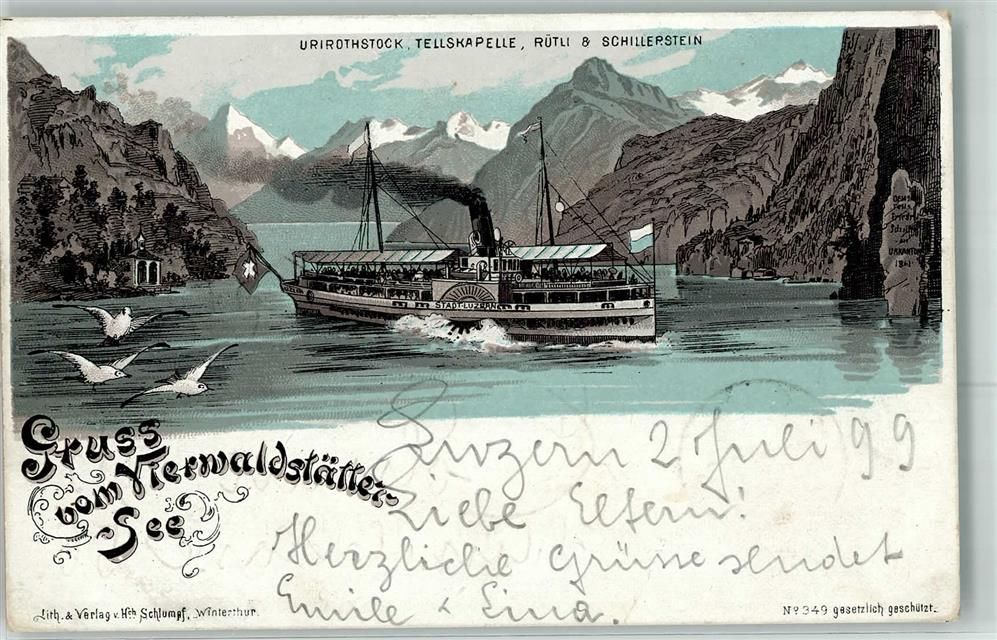 URIROTHSTOCK, TELLSKAPELLE, RÜTLI & SCHILLERSTEIN
STADT-LUZERN
URKANTONE
Gruss
vom Vierwaldstätter-
See
Luzern 2 Juli 99
Liebe Eltern!
Herzliche Grüsse sendet
Emile & Lina.
Lith. & Verlag v. Hch Schlumpf, Winterthur.
No 349 gesetzlich geschützt.